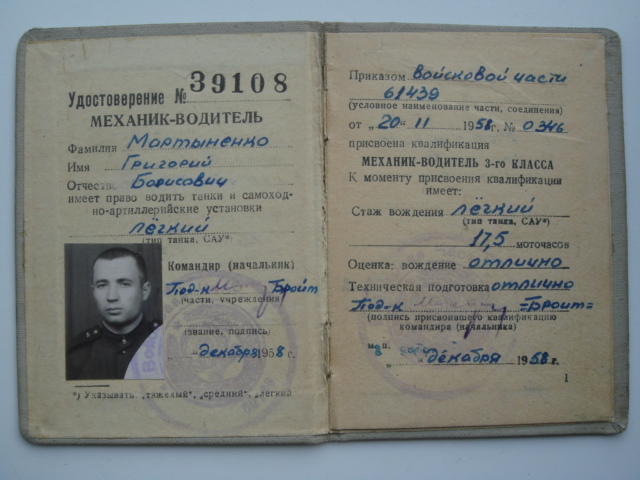 Удостоверение № 39108
МЕХАНИК-ВОДИТЕЛЬ
Фамилия Мартыненко
Имя Григорий
Отчество Борисович
имеет право водить танки и самоход-
но-артиллерийские установки
лёгкий
(тип танка, САУ*)
Командир (начальник)
Под-к Бройт
(части, учреждения)
(звание, подпись)
„ " декабря 1958 г.
*) Указывать „тяжелый", „средний", „легкий
Приказом войсковой части
61439
(условное наименование части, соединения)
от „20" 11 1958 г. № 0346
присвоена квалификация
МЕХАНИК-ВОДИТЕЛЬ 3-го КЛАССА
К моменту присвоения квалификации
имеет:
Стаж вождения лёгкий
(тип танка, САУ*)
17,5 моточасов
Оценка: вождение отлично
Техническая подготовка отлично
Под-к =Бройт=
(подпись присвоившего квалификацию
командира (начальника)
м. п.
декабря 1958 г.
1